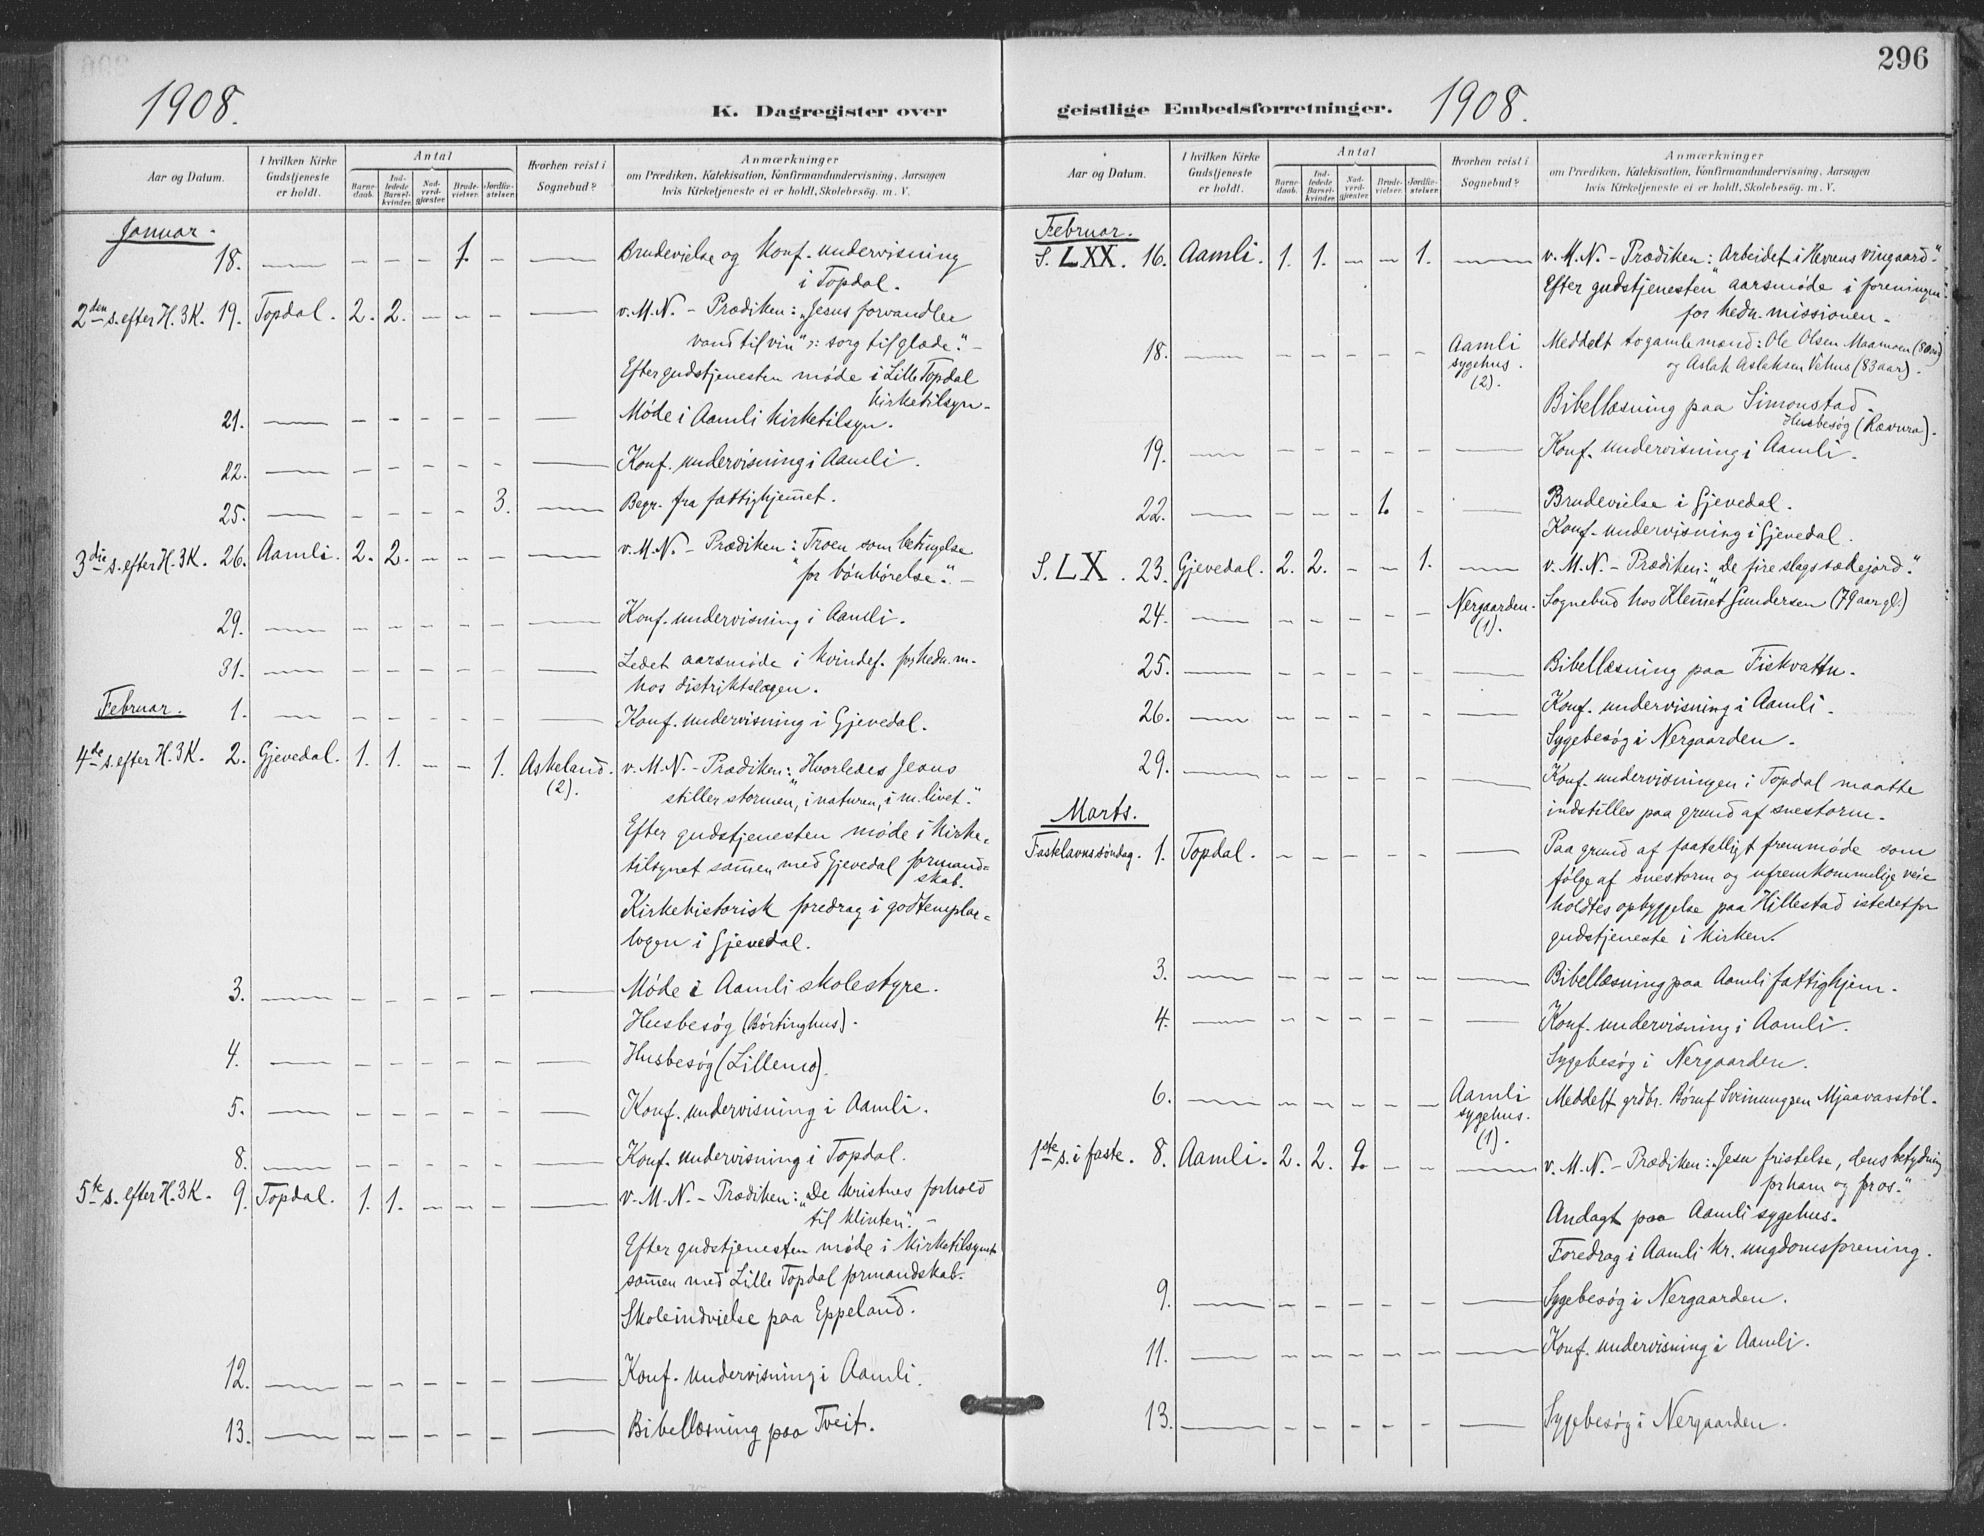 1908.
K. Dagregister over
Aar og Datum.
I hvilken Kirke Gudstjeneste er holdt.
Antal
Barnedaab.
Indledede Barselkvinder.
Nadverdgjæster.
Brudevielser.
Jordfæstelser.
Hvorhen reist i Sognebud?
Anmærkninger
om Prædiken, Katekisation, Konfirmandundervisning, Aarsagen
hvis Kirketjeneste ei er holdt, Skolebesøg, m. V.
Januar.
18. — — 1. — — Brudevielse og Konf. undervisning
i Topdal.
2den s. efter H. 3 K. 19. Topdal. 2. 2. — — — — v. M. N. – Prædiken: „Jesus forvandler
vand til vin" ɔ: sorg til glæde." –
Efter gudstjenesten møde i Lille Topdal
kirketilsyn.
21. — — — — — — — Møde i Aamli kirketilsyn.
22. — — — — — — — Konf. undervisning i Aamli.
25. — — — — — 3. — Begr. fra fattighjem̅et.
3die s. efter H. 3 K. 26. Aamli. 2. 2. — — — — v. M. N. – Prædiken: „Troen som betingelse
for bønhørelse." –
29. — — — — — — — Konf. undervisning i Aamli.
31. — — — — — — — Ledet aarsmøde i kvindef. for hedn. m.
hos distriktslægen.
Februar. 1. — — — — — — — Konf. undervisning i Gjevedal.
4de s. efter H. 3 K. 2. Gjevedal. 1. 1. — — 1. Askeland. v. M. N. – Prædiken: „Hvorledes Jesus
(2). stiller stormen", i naturen, i m. livet."
Efter gudstjenesten møde i kirke-
tilsynet sam̅en med Gjevedal formand-
skab.
Kirkehistorisk foredrag i godtemplar-
logen i Gjevedal.
3. — — — — — — — Møde i Aamli skolestyre.
Husbesøg (Børtinghus).
4. — — — — — — — Husbesøg (Lillemo).
5. — — — — — — — Konf. undervisning i Aamli.
8. — — — — — — — Konf. undervisning i Topdal.
5te s. efter H. 3 K. 9. Topdal. 1. 1. — — — — v. M. N. – Prædiken: „De kristnes forhold
til klinten". –
Efter gudstjenesten møde i kirketilsynet
sam̅en med Lille Topdal formandskab.
Skoleindvielse paa Eppeland.
12. — — — — — — — Konf. undervisning i Aamli.
13. — — — — — — — Bibellæsning paa Tveit.
296
geistlige Embedsforretninger.
1908.
Aar og Datum.
I hvilken Kirke Gudstjeneste er holdt.
Antal
Barnedaab.
Indledede Barselkvinder.
Nadverdgjæster.
Brudevielser.
Jordfæstelser.
Hvorhen reist i Sognebud?
Anmærkninger
om Prædiken, Katekisation, Konfirmandundervisning, Aarsagen
hvis Kirketjeneste ei er holdt, Skolebesøg, m. V.
Februar.
S. LXX. 16. Aamli. 1. 1. — — 1. — v. M. N. – Prædiken: „Arbeidet i Herrens vingaard."
Efter gudstjenesten aarsmøde i foreningen
for hedn. missionen.
18. — — — — — — Aamli sygehus. (2). Meddelt to gamle mænd: Ole Olsen Maamoen (80 aar)
og Aslak Aslaksen Vehus (83 aar).
Bibellæsning paa Simonstad.
Husbesøg (Rævura).
19. — — — — — — — Konf. undervisning i Aamli.
22. — — — — 1. — — Brudevielse i Gjevedal.
Konf. undervisning i Gjevedal.
S. LX. 23. Gjevedal. 2. 2. — — 1. — v. M. N. – Prædiken: „De fire slags sædejord."
24. — — — — — — Nergaarden. (1). Sognebud hos Klem̅et Gundersen (79 aar gl.)
25. — — — — — — — Bibellæsning paa Fiskvattn.
26. — — — — — — — Konf. undervisning i Aamli.
Sygebesøg i Nergaarden.
29. — — — — — — — Konf. undervisningen i Topdal maatte
indstilles paa grund af snestorm.
Marts.
Fastelavnssøndag. 1. Topdal. — — — — — — Paa grund af faatalligt fremmøde som
følge af snestorm og ufremkommelige veie
holdtes opbyggelse paa Hillestad istedetfor
gudstjeneste i kirken.
3. — — — — — — — Bibellæsning paa Aamli fattighjem.
4. — — — — — — — Konf. undervisning i Aamli.
Sygebesøg i Nergaarden.
6. — — — — — — Aamli sygehus. (1). Meddelt grdbr. Børuf Sveinungsen Mjaavasstøl.
1ste s. i faste. 8. Aamli. 2. 2. 9. — — — v. M. N. – Prædiken: „Jesu fristelse, dens betydning
for ham og for os."
Andagt paa Aamli sygehus.
Foredrag i Aamli kr. ungdomsforening.
9. — — — — — — — Sygebesøg i Nergaarden.
11. — — — — — — — Konf. undervisning i Aamli.
13. — — — — — — — Sygebesøg i Nergaarden.